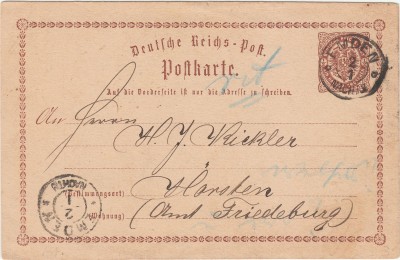 Deutsche Reichs-Post.
Postkarte.
Auf die Vorderseite ist nur die Adresse zu schreiben.
EMDEN
2
1
An Herrn
H. J. Kickler
Bestimmungsort)
Horsten
(Wohnung)
(Amt Friedeburg)
EMDEN
2
1